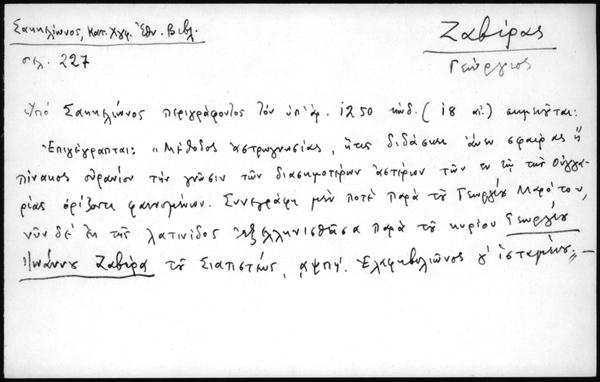 Σακκελίωνος, Κατ. Χγφ. Ἐθν. Βιβλ.
σελ. 227
Ζαβίρας
Γεώργιος
Ὑπὸ Σακκελίωνος περιγράφοντος τὸν ὑπ' ἀρ. 1250 κώδ. (18 αἰ.) σημειοῦται:
Ἐπιγέγραπται: "Μέθοδος ἀστρογνωσίας, ἥτις διδάσκει ἄνευ σφαίρας ἢ
πίνακος οὐρανίου τὴν γνῶσιν τῶν διασημοτέρων ἀστέρων τῶν ἐν τῷ τῆς Οὑγγα-
ρίας ὁρίζοντι φαινομένων. Συνεγράφη μὲν ποτὲ παρὰ τοῦ Γεωργίου Μαρό του,
νῦν δὲ ἐκ τῆς λατινίδος ἐξελληνισθεῖσα παρὰ τοῦ κυρίου Γεωργίου
Ἰωάννου Ζαβίρα τοῦ Σιαπιστέως, αψπγ'. Ἐλαφηβολιῶνος γ' ἱσταμένου". —